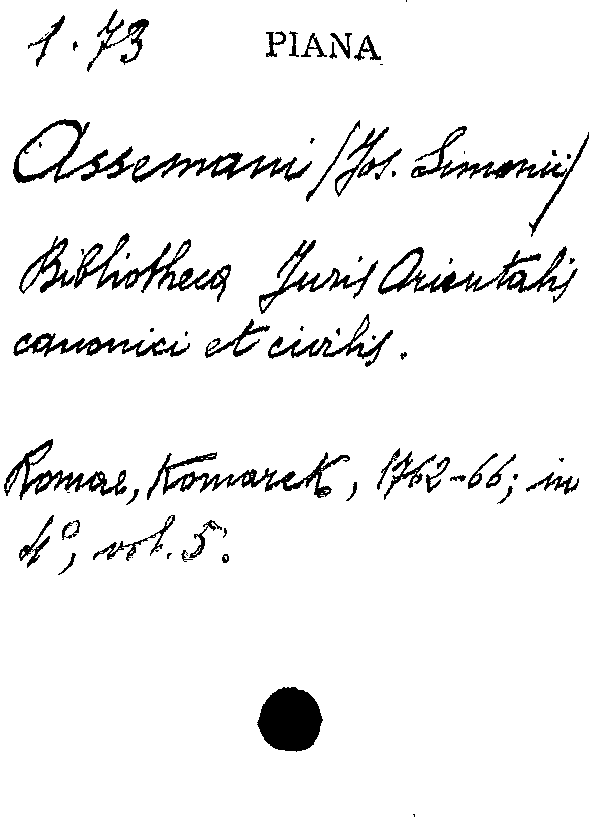 1.73 PIANA
Assemani (Jos. Simonii)
Bibliotheca Juris Orientalis
canonici et civilis.
Romae, Komarek, 1762-66; in
4º, vol. 5.